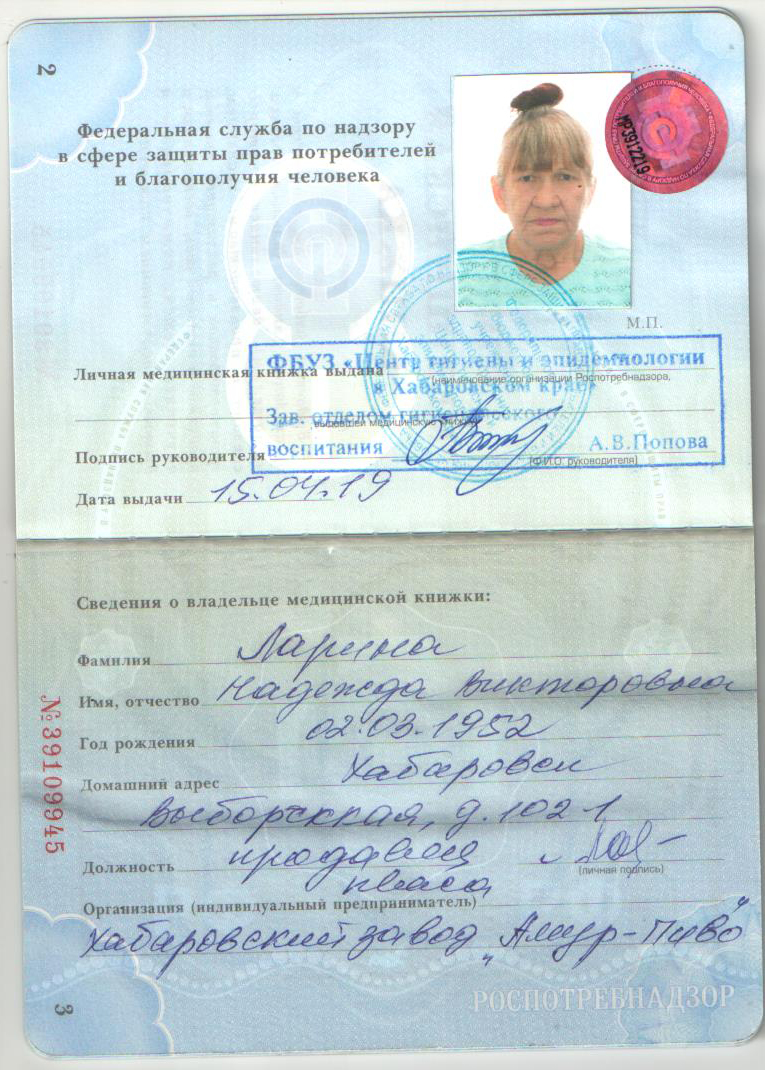 2
Федеральная служба по надзору
в сфере защиты прав потребителей
и благополучия человека
МР3912219
М.П.
ФБУЗ «Центр гигиены и эпидемиологии
Личная медицинская книжка выдана
(наименование организации Роспотребнадзора,
в Хабаровском крае»
Зав. отделом гигиенического
выдавшей медицинскую книжку)
воспитания А.В.Попова
Подпись руководителя
(Ф.И.О. руководителя)
Дата выдачи 15.04.19
Сведения о владельце медицинской книжки:
Фамилия Ларина
Имя, отчество Надежда Викторовна
Год рождения 02.03.1952
Домашний адрес Хабаровск
Выборгская, д. 102-1
Должность продавец
(личная подпись)
кваса
Организация (индивидуальный предприниматель)
Хабаровский завод "Амур-Пиво"
№39109945
РОСПОТРЕБНАДЗОР
3